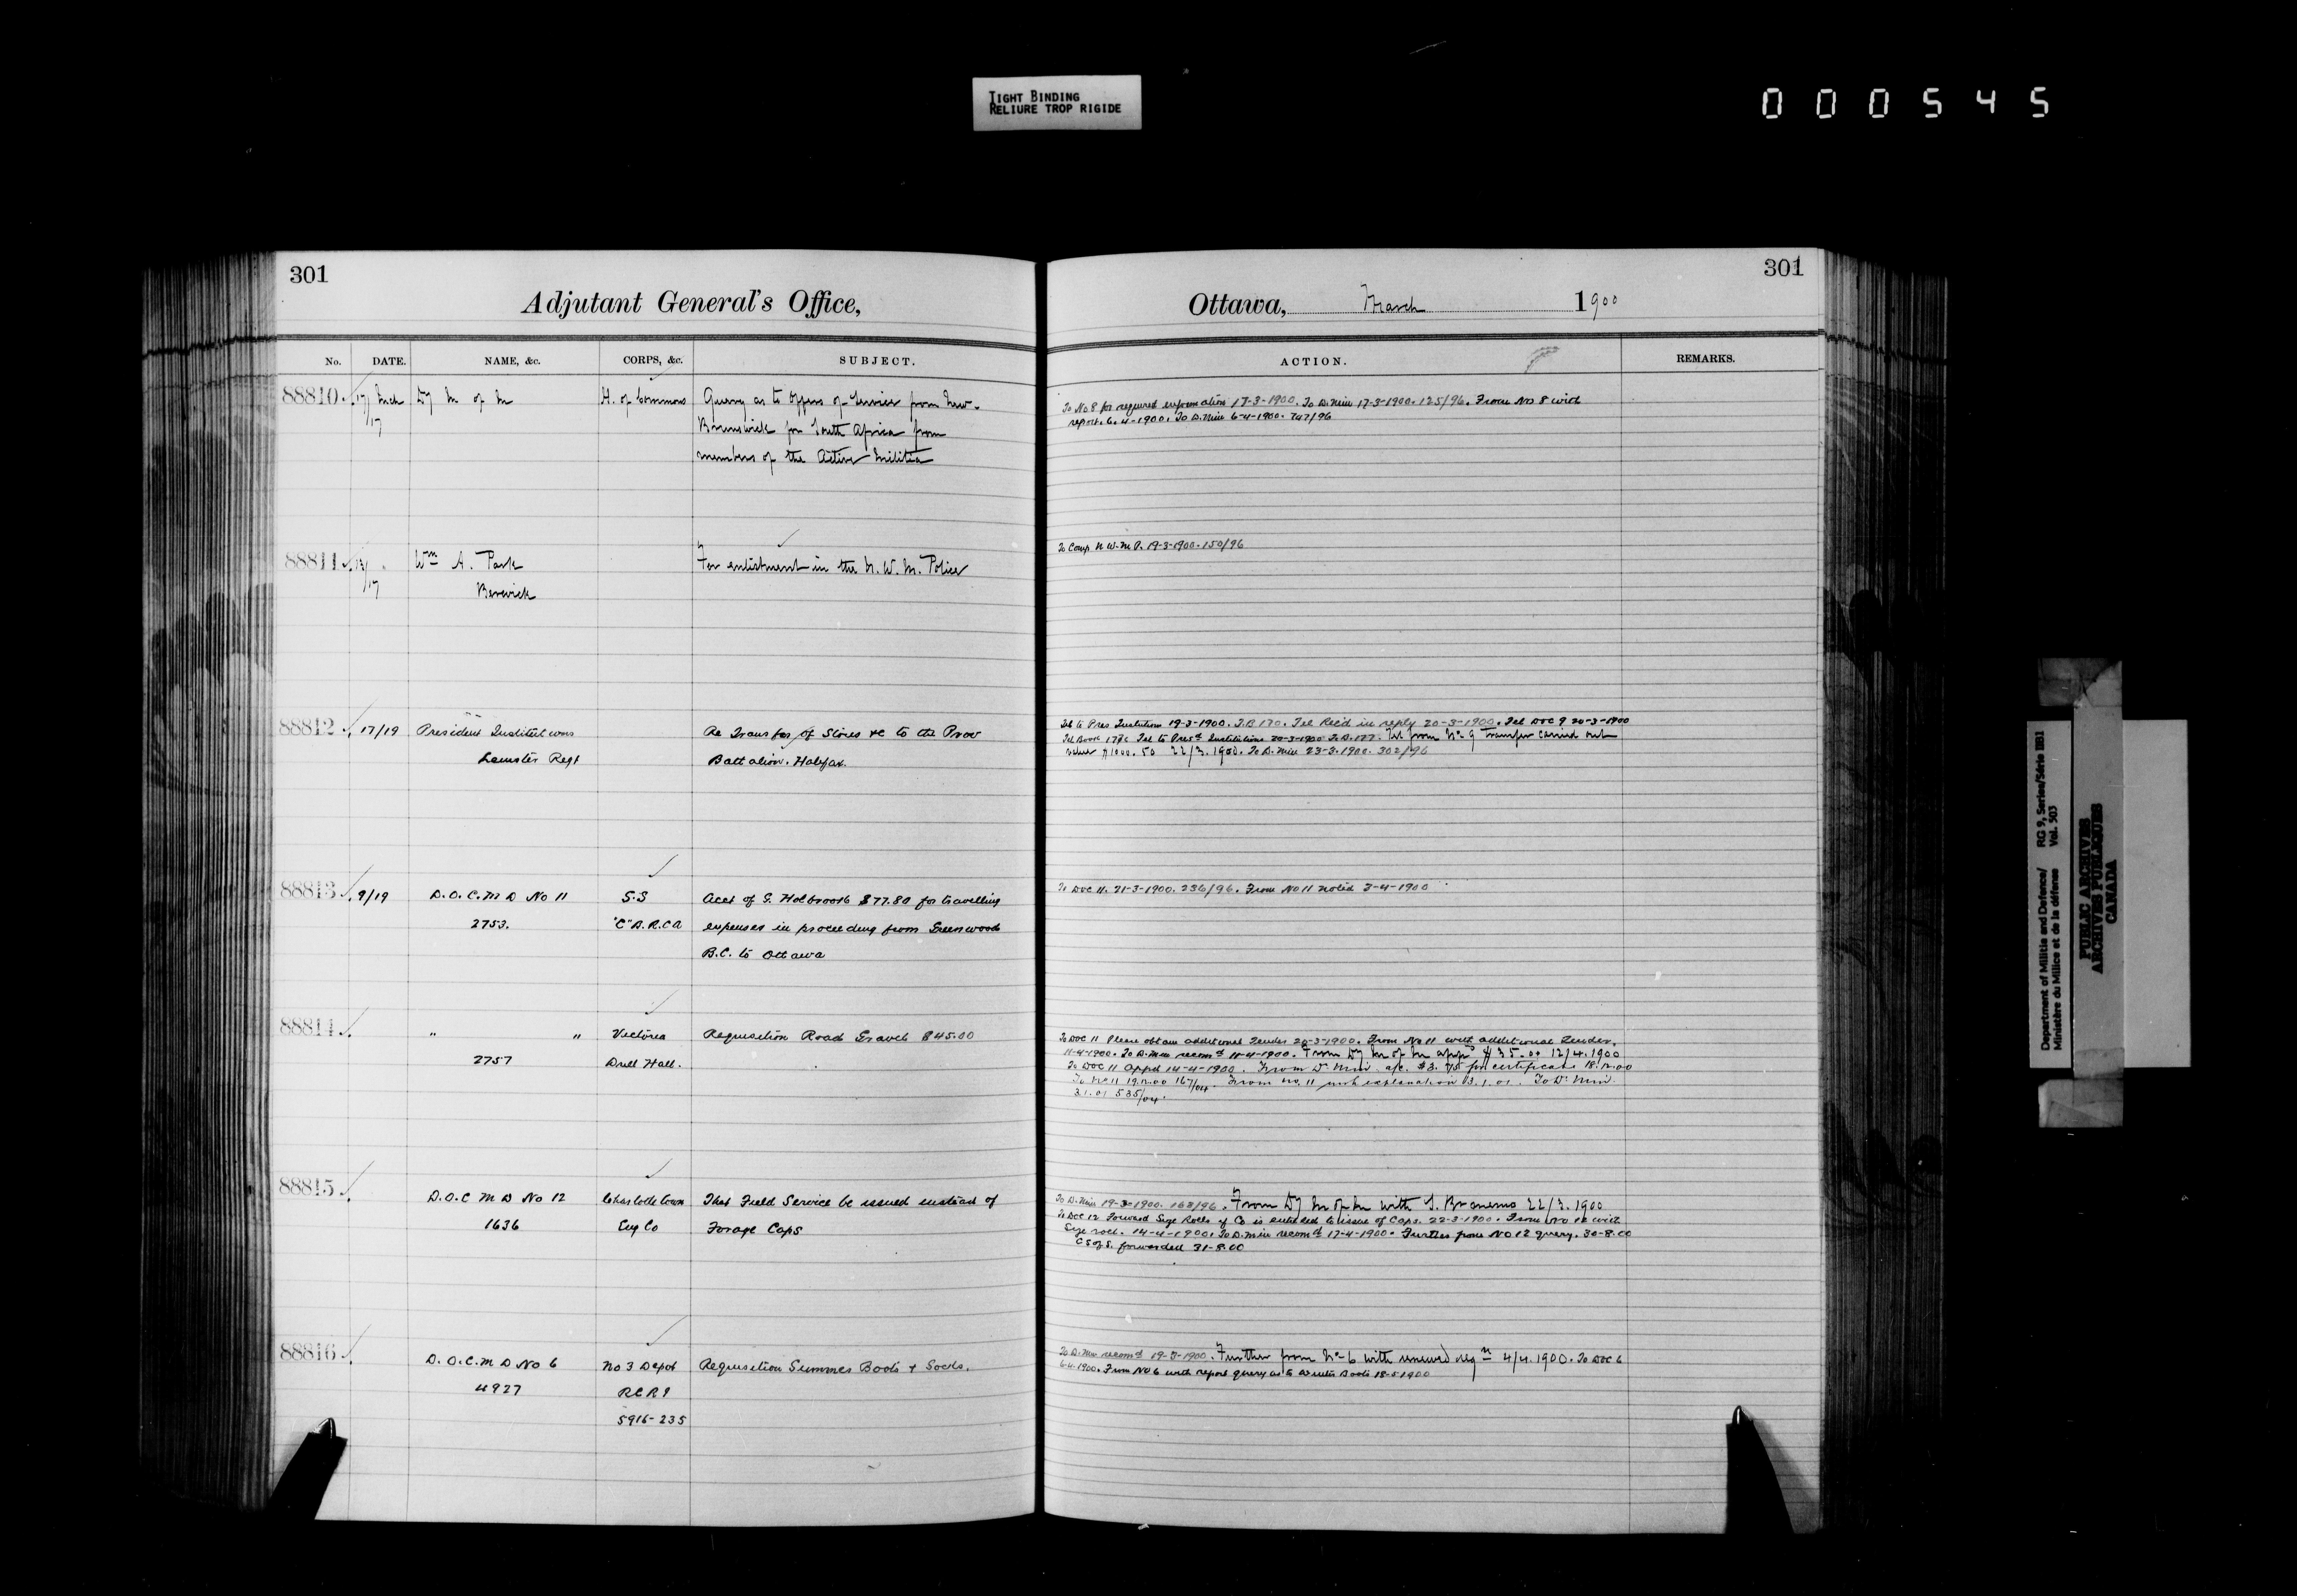 TIGHT BINDING
RELIURE TROP RIGIDE
000545
301
Adjutant General's Office,
No. DATE. NAME, &c. CORPS, &c. SUBJECT.
88810 17/17 Mch Dy M of M H. of Commons Query as to offers of Service from New-
Brunswick for South Africa from
members of the Active Militia
88811 Wm A. Park For enlistment in the N. W. M. Police
Berwick
88812 17/19 President Institutions Re Transfer of Stores &c to the Prov
Leinster Regt Battalion. Halifax.
88813 9/19 D.O.C. M D No 11 S.S Acct of G. Holbrook $77.80 for travelling
2753. "C" expenses in proceeding from Greenwood
B.C. to Ottawa
88814 " " Victoria Requisition Road Gravel $45.00
2757 Drill Hall.
88815 D.O.C M D No 12 Charlottetown That Field Service be issued instead of
1636 Eng Co Forage Caps
88816 D.O.C. M D No 6 No 3 Depot Requisition Summer Boots + Socks.
4927 RCRI
5916-235
301
Ottawa, March 1900
ACTION. REMARKS.
To No 8 for required information 17-3-1900. To D. Min 17-3-1900. 125/96. From No 8 with
report. 6-4-1900. To D. Min 6-4-1900. 747/96
To Comp N.W.M.P. 19-3-1900. 150/96
Tel to Pres Institution 19-3-1900. T.B 170. Tel Rec'd in reply 20-3-1900. Tel DOC 9 20-3-1900
Tel Book Tel to Prest Institutions 20-3-1900 T.B. 177. Tel from No 9 Transfer carried out
value $1000.50 22/3.1900. To D. Min 23-3-1900. 302/96
To DOC 11. 21-3-1900. 236/96. From No 11 noted 3-4-1900
To DOC 11 Please obtain additional Tender 20-3-1900. From No 11 with additional Tender.
11-4-1900. To D. Min recomd 11-4-1900. From Dy M of M appd $35.00 12/4.1900
To DOC 11 Appd 14-4-1900. From D. Min a/c. $3.75 for certificate 18.12.00
To No 11 19.12.00 167/04. From No. 11 with explanation 3.1.01. To D. Min.
3.1.01 535/04.
To D. Min 19-3-1900. 163/96. From Dy M of M with 22/3.1900
To DOC 12 Forward Size Rolls if Co is entitled to issue of Caps. 22-3-1900. From No 12 with
Size roll. 14-4-1900. To D. Min recomd 17-4-1900. Further from No 12 query. 30-8.00
forwarded 31-8.00
To D. Min recomd 19-3-1900. Further from No 6 with renewed reqn 4/4.1900. To DOC 6
6-4-1900. From No 6 with report query as to Winter Boots 18-5-1900
Department of Militia and Defence/
Ministère du Milice et de la défense
RG 9, Series/Série IIB1
Vol. 503
PUBLIC ARCHIVES
ARCHIVES PUBLIQUES
CANADA